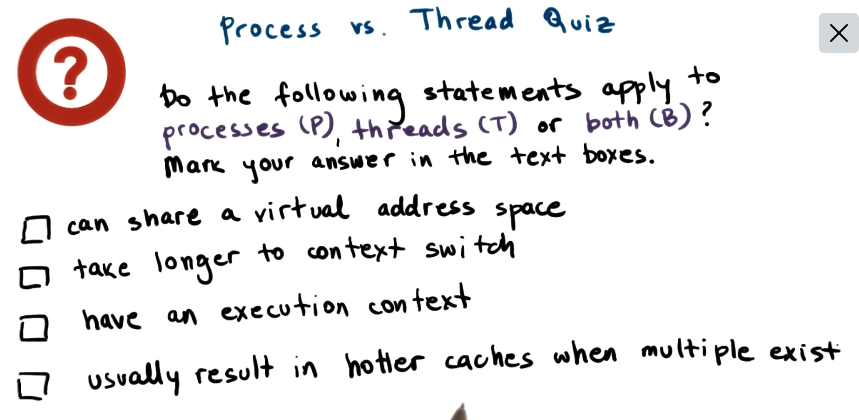 ?
Process vs. Thread Quiz
Do the following statements apply to
processes (P), threads (T) or both (B)?
Mark your answer in the text boxes.
can share a virtual address space
take longer to context switch
have an execution context
usually result in hotter caches when multiple exist